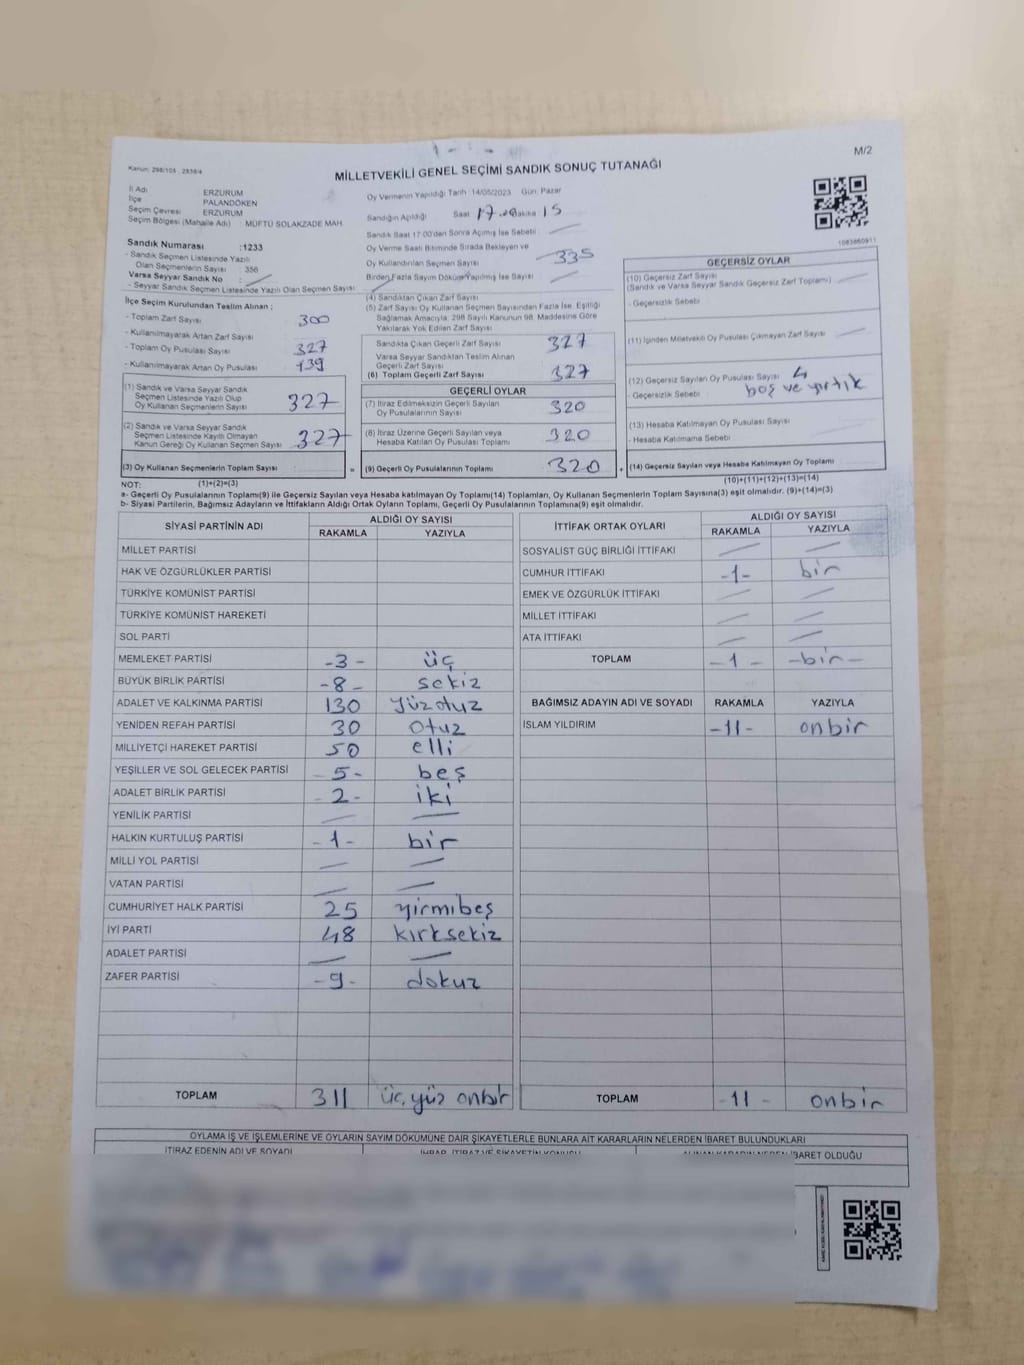 M/2
Kanun: 298/105 , 2839/4
MİLLETVEKİLİ GENEL SEÇİMİ SANDIK SONUÇ TUTANAĞI
İl Adı ERZURUM
İlçe PALANDÖKEN
Seçim Çevresi ERZURUM
Seçim Bölgesi (Mahalle Adı) MÜFTÜ SOLAKZADE MAH
Oy Vermenin Yapıldığı Tarih : 14/05/2023 Gün: Pazar
Sandığın Açıldığı Saat 17 Dakika 15
Sandık Saat 17:00'den Sonra Açılmış İse Sebebi :
Oy Verme Saati Bitiminde Sırada Bekleyen ve
Oy Kullandırılan Seçmen Sayısı 335
Birden Fazla Sayım Döküm Yapılmış İse Sayısı
Sandık Numarası :1233
- Sandık Seçmen Listesinde Yazılı
Olan Seçmenlerin Sayısı : 356
Varsa Seyyar Sandık No :
- Seyyar Sandık Seçmen Listesinde Yazılı Olan Seçmen Sayısı :
İlçe Seçim Kurulundan Teslim Alınan ;
- Toplam Zarf Sayısı 300
- Kullanılmayarak Artan Zarf Sayısı
- Toplam Oy Pusulası Sayısı 327
- Kullanılmayarak Artan Oy Pusulası 139
(1) Sandık ve Varsa Seyyar Sandık
Seçmen Listesinde Yazılı Olup
Oy Kullanan Seçmenlerin Sayısı 327
(2) Sandık ve Varsa Seyyar Sandık
Seçmen Listesinde Kayıtlı Olmayan
Kanun Gereği Oy Kullanan Seçmen Sayısı 327
(3) Oy Kullanan Seçmenlerin Toplam Sayısı =
(4) Sandıktan Çıkan Zarf Sayısı
(5) Zarf Sayısı Oy Kullanan Seçmen Sayısından Fazla İse, Eşitliği
Sağlamak Amacıyla, 298 Sayılı Kanunun 98. Maddesine Göre
Yakılarak Yok Edilen Zarf Sayısı
Sandıkta Çıkan Geçerli Zarf Sayısı 327
Varsa Seyyar Sandıktan Teslim Alınan
Geçerli Zarf Sayısı
(6) Toplam Geçerli Zarf Sayısı 327
GEÇERLİ OYLAR
(7) İtiraz Edilmeksizin Geçerli Sayılan
Oy Pusulalarının Sayısı 320
(8) İtiraz Üzerine Geçerli Sayılan veya
Hesaba Katılan Oy Pusulası Toplamı 320
(9) Geçerli Oy Pusulalarının Toplamı 320 +
1083860911
GEÇERSİZ OYLAR
(10) Geçersiz Zarf Sayısı
(Sandık ve Varsa Seyyar Sandık Geçersiz Zarf Toplamı)
- Geçersizlik Sebebi
(11) İçinden Milletvekili Oy Pusulası Çıkmayan Zarf Sayısı
(12) Geçersiz Sayılan Oy Pusulası Sayısı 4
- Geçersizlik Sebebi : boş ve yırtık
(13) Hesaba Katılmayan Oy Pusulası Sayısı
- Hesaba Katılmama Sebebi
(14) Geçersiz Sayılan veya Hesaba Katılmayan Oy Toplamı
NOT: (1)+(2)=(3) (10)+(11)+(12)+(13)=(14)
a- Geçerli Oy Pusulalarının Toplamı(9) ile Geçersiz Sayılan veya Hesaba katılmayan Oy Toplamı(14) Toplamları, Oy Kullanan Seçmenlerin Toplam Sayısına(3) eşit olmalıdır. (9)+(14)=(3)
b- Siyasi Partilerin, Bağımsız Adayların ve İttifakların Aldığı Ortak Oyların Toplamı, Geçerli Oy Pusulalarının Toplamına(9) eşit olmalıdır.
SİYASİ PARTİNİN ADI ALDIĞI OY SAYISI
RAKAMLA YAZIYLA
MİLLET PARTİSİ
HAK VE ÖZGÜRLÜKLER PARTİSİ
TÜRKİYE KOMÜNİST PARTİSİ
TÜRKİYE KOMÜNİST HAREKETİ
SOL PARTİ
MEMLEKET PARTİSİ -3- üç
BÜYÜK BİRLİK PARTİSİ -8- sekiz
ADALET VE KALKINMA PARTİSİ 130 yüzotuz
YENİDEN REFAH PARTİSİ 30 otuz
MİLLİYETÇİ HAREKET PARTİSİ 50 elli
YEŞİLLER VE SOL GELECEK PARTİSİ 5- beş
ADALET BİRLİK PARTİSİ -2- iki
YENİLİK PARTİSİ
HALKIN KURTULUŞ PARTİSİ -1- bir
MİLLİ YOL PARTİSİ
VATAN PARTİSİ
CUMHURİYET HALK PARTİSİ 25 yirmibeş
İYİ PARTİ 48 kırksekiz
ADALET PARTİSİ
ZAFER PARTİSİ -9- dokuz
TOPLAM 311 üç yüz onbir
İTTİFAK ORTAK OYLARI ALDIĞI OY SAYISI
RAKAMLA YAZIYLA
SOSYALİST GÜÇ BİRLİĞİ İTTİFAKI
CUMHUR İTTİFAKI -1- bir
EMEK VE ÖZGÜRLÜK İTTİFAKI
MİLLET İTTİFAKI
ATA İTTİFAKI
TOPLAM -1- -bir-
BAĞIMSIZ ADAYIN ADI VE SOYADI RAKAMLA YAZIYLA
İSLAM YILDIRIM -11- onbir
TOPLAM -11- onbir
OYLAMA İŞ VE İŞLEMLERİNE VE OYLARIN SAYIM DÖKÜMÜNE DAİR ŞİKAYETLERLE BUNLARA AİT KARARLARIN NELERDEN İBARET BULUNDUKLARI
İTİRAZ EDENİN ADI VE SOYADI İHBAR, İTİRAZ VE ŞİKAYETİN KONUSU ALINAN KARARIN NEDEN İBARET OLDUĞU